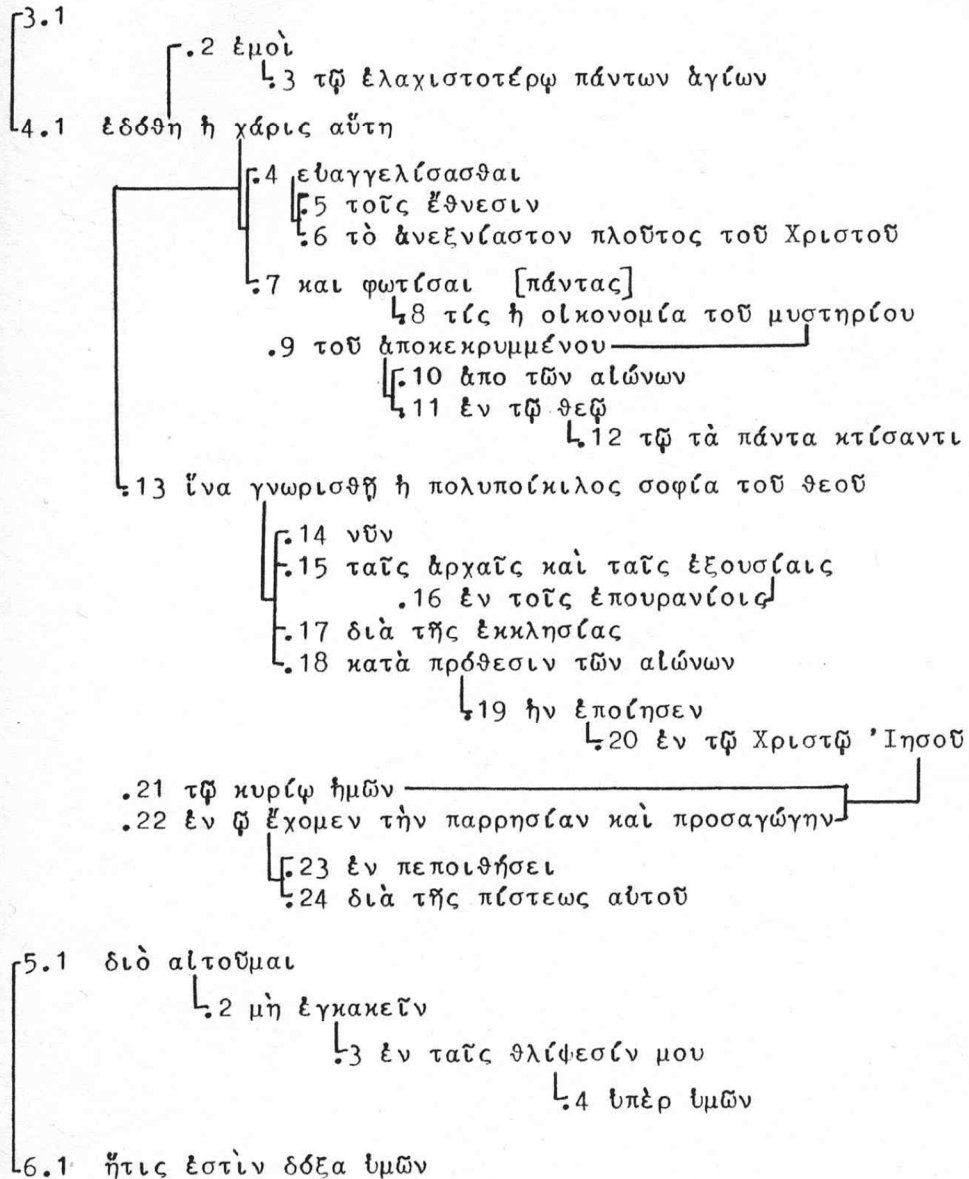 3.1
.2 ἐμοὶ
.3 τῷ ἐλαχιστοτέρῳ πάντων ἁγίων
4.1 ἐδόθη ἡ χάρις αὕτη
.4 εὐαγγελίσασθαι
.5 τοῖς ἔθνεσιν
.6 τὸ ἀνεξνίαστον πλοῦτος τοῦ Χριστοῦ
.7 και φωτίσαι [πάντας]
.8 τίς ἡ οἰκονομία τοῦ μυστηρίου
.9 τοῦ ἀποκεκρυμμένου
.10 ἀπο τῶν αἰώνων
.11 ἐν τῷ θεῷ
.12 τῷ τὰ πάντα κτίσαντι
.13 ἵνα γνωρισθῇ ἡ πολυποίκιλος σοφία τοῦ θεοῦ
.14 νῦν
.15 ταῖς ἀρχαῖς καὶ ταῖς ἐξουσίαις
.16 ἐν τοῖς ἐπουρανίοις
.17 διὰ τῆς ἐκκλησίας
.18 κατὰ πρόθεσιν τῶν αἰώνων
.19 ἡν ἐποίησεν
.20 ἐν τῷ Χριστῷ Ἰησοῦ
.21 τῷ κυρίῳ ἡμῶν
.22 ἐν ᾧ ἔχομεν τὴν παρρησίαν καὶ προσαγώγην
.23 ἐν πεποιθήσει
.24 διὰ τῆς πίστεως αὐτοῦ
5.1 διὸ αἰτοῦμαι
.2 μὴ ἐγκακεῖν
.3 ἐν ταῖς θλίψεσίν μου
.4 ὑπὲρ ὑμῶν
6.1 ἥτις ἐστὶν δόξα ὑμῶν